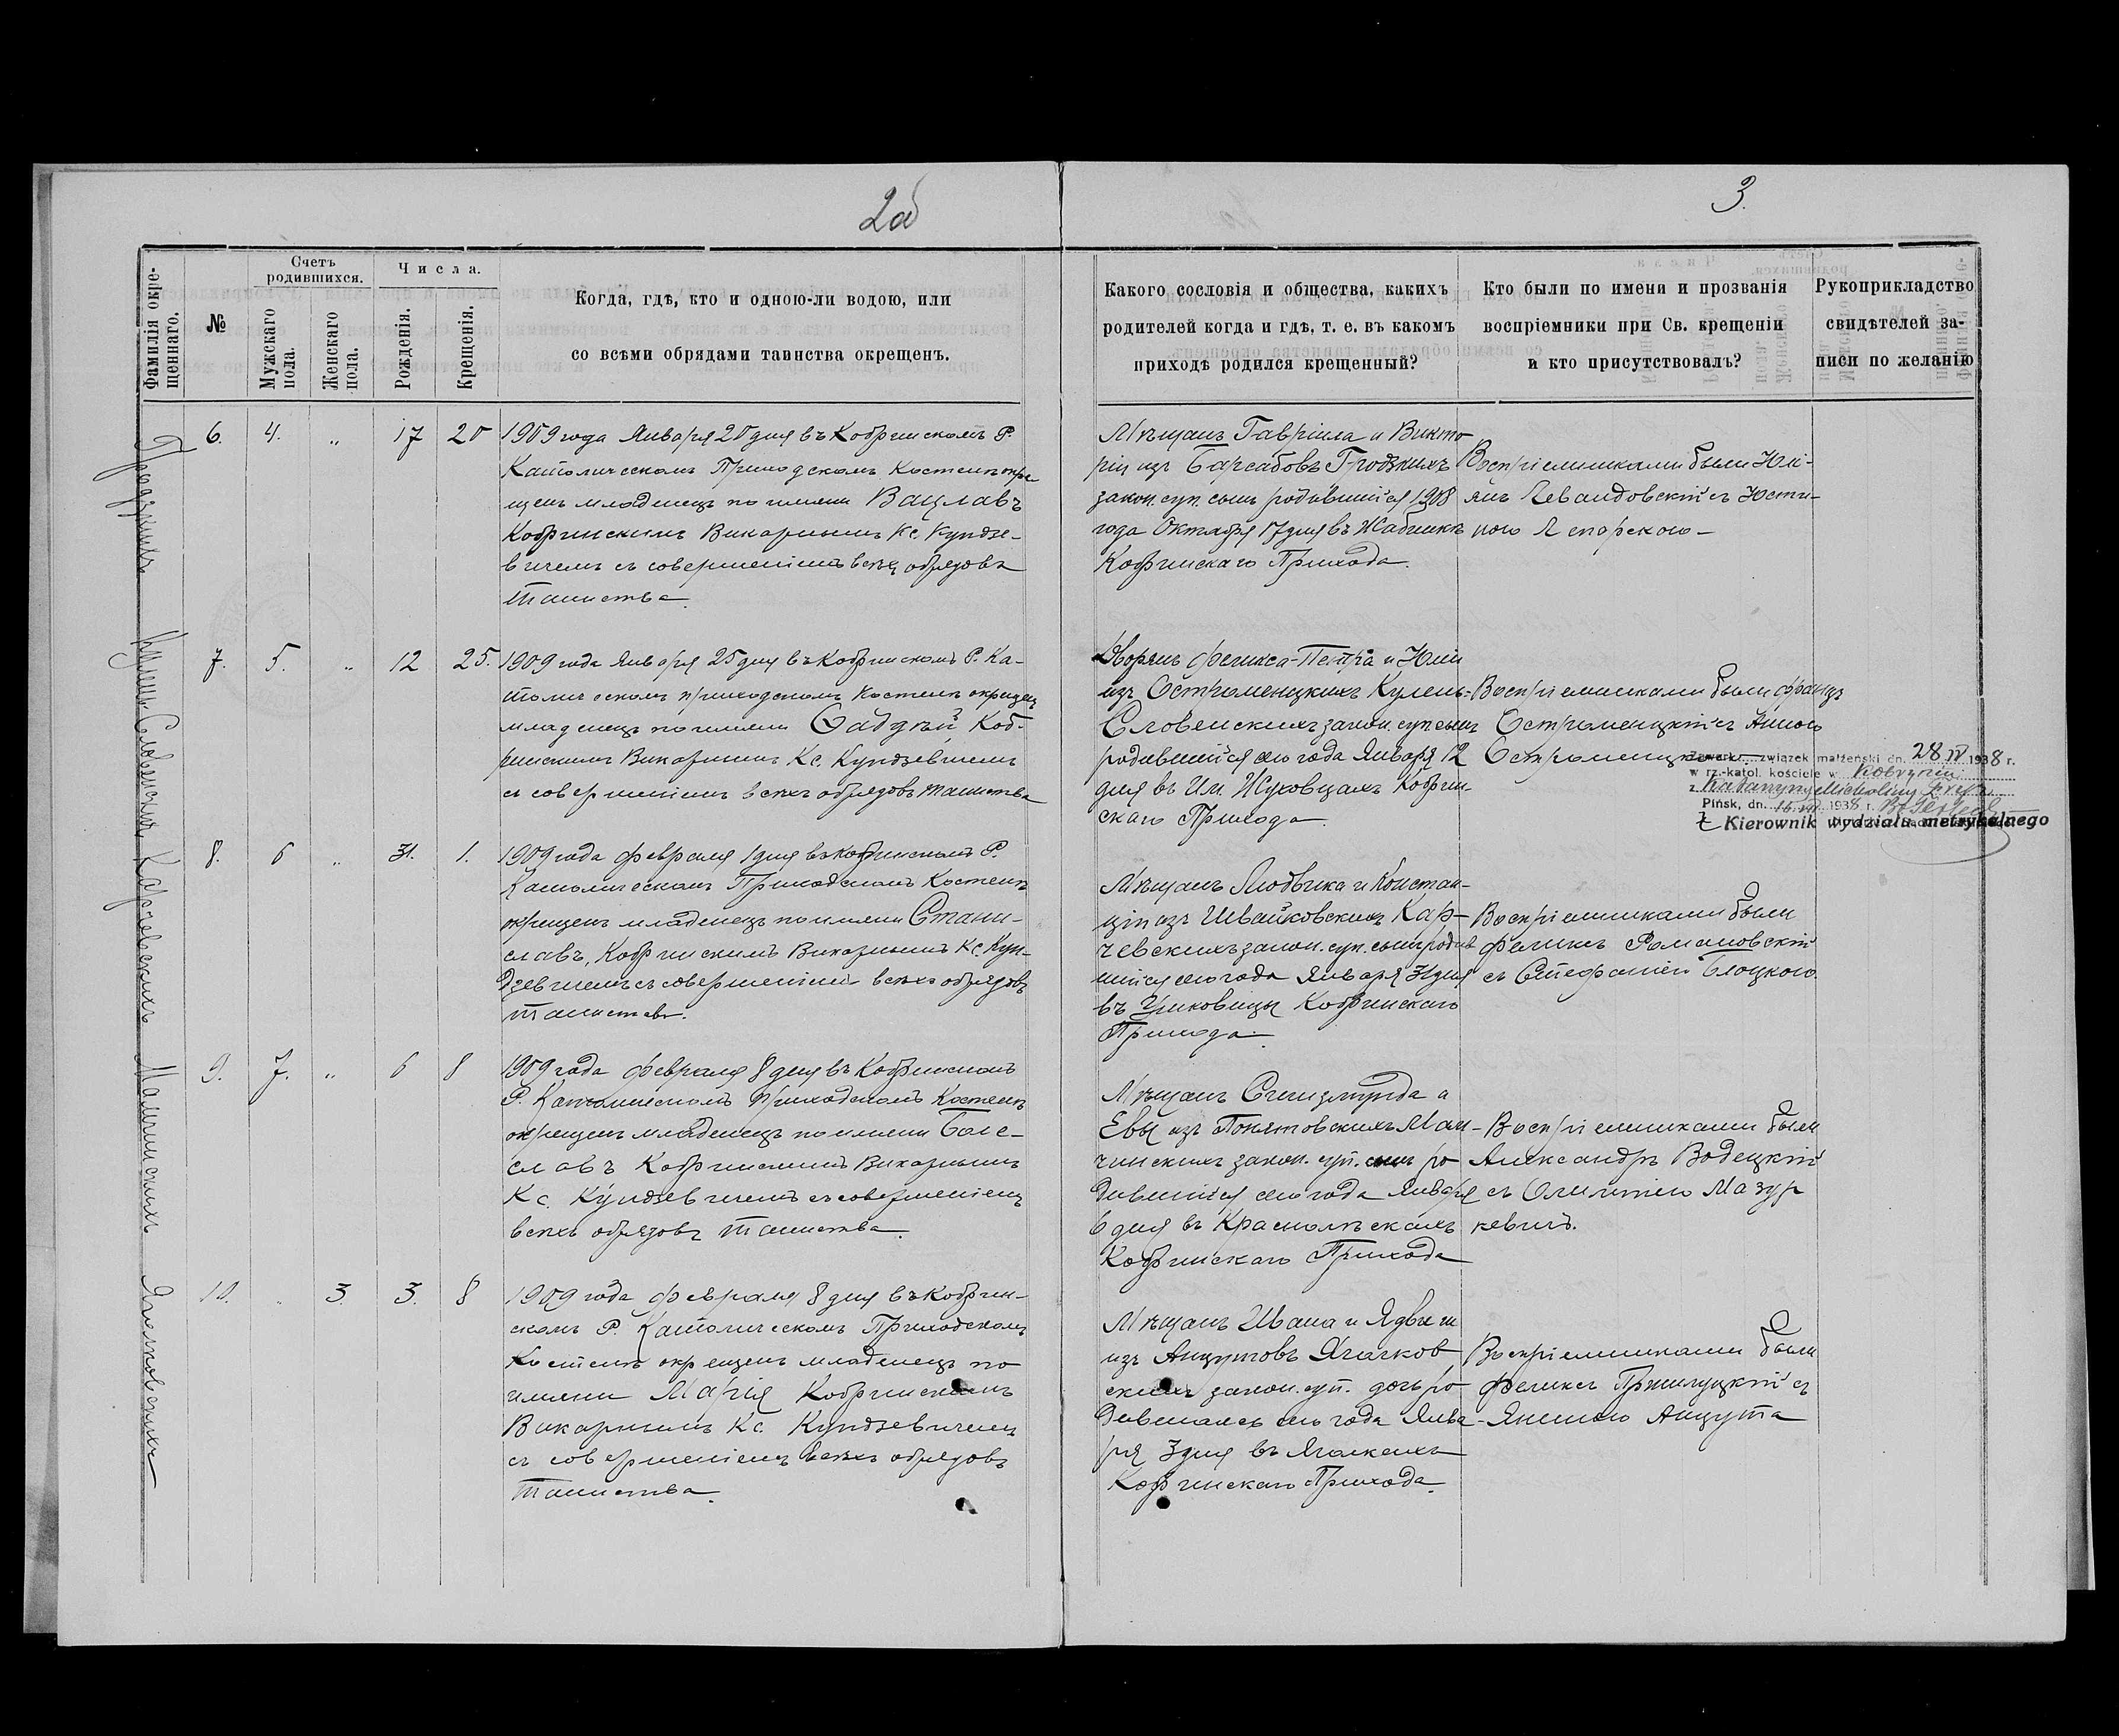 2об
3.
Фамилія окре-
щеннаго.
№
Счетъ
родившихся.
Мужскаго
пола.
Женскаго
пола.
Числа.
Рожденія.
Крещенія.
Когда, гдѣ, кто и одною-ли водою, или
со всѣми обрядами таинства окрещенъ.
Какого сословія и общества, какихъ
родителей когда и гдѣ, т. е. въ какомъ
приходѣ родился крещенный?
Кто были по имени и прозванія
воспріемники при Св. крещеніи
и кто присутствовалъ?
Рукоприкладство
свидѣтелей за-
писи по желанію
6. 4. „ 17 20
1909 года Января 20 дня въ Кобринскомъ Р.
Католическомъ Приходскомъ Костелѣ окре
щенъ младенецъ по имени Вацлавъ
Кобринскимъ Викарнымъ Кс. Кундзе-
вичемъ съ совершеніемъ всѣхъ обрядовъ
Таинства.
Мѣщанъ Гавріила и Викто
ріи изъ Барсабовъ Гродзкихъ
закон. суп. сынъ родившійся 1908
года Октября 17 дня въ Жабинкѣ
Кобринскаго Прихода.
Воспріемниками были Юлі-
янъ Левандовскій съ Юсти-
ною
7. 5. „ 12 25.
Кулень-Словенскихъ
1909 года Января 25 дня въ Кобринскомъ Р. Ка-
толическомъ приходскомъ Костелѣ окрещенъ
младенецъ по имени Фаддѣй Коб-
ринскимъ Викарнымъ Кс. Кундзевичемъ
съ совершеніемъ всѣхъ обрядовъ таинства
Дворянъ Феликса-Петра и Юліи
изъ Остроменцкихъ Кулень=
Словенскихъ закон. суп. сынъ
родившійся сего года Января 12
дня въ Им. Жуховцахъ Кобрин-
скаго Прихода.
Воспріемниками были Францъ
Остроменцкій съ Анною
Остроменцкою
Zawarł związek małżeński dn. 28 IV 1938 r.
w rz.-katol. kościele w Kobryniu
z Katarzyną Micheliną
Pińsk, dn. 16 1938 r.
Kierownik wydziału metrykalnego
8. 6 „ 31. 1.
Карчевскихъ
1909 года Февраля 1 дня въ Кобринскомъ Р.
Католическомъ Приходскомъ Костелѣ
окрещенъ младенецъ по имени Стани-
славъ, Кобринскимъ Викарнымъ Кс. Кун-
дзевичемъ съ совершеніемъ всѣхъ обрядовъ
таинства.
Мѣщанъ Людвика и Констан-
ціи изъ Швайковскихъ Кар-
чевскихъ закон. суп. сынъ родив
шійся сего года Января 31 дня
въ Кобринскаго
Прихода.
Воспріемниками были
Феликсъ Романовскій
съ Стефаніей Блоцкою.
9. 7. „ 6 8
Мамчинскихъ
1909 года Февраля 8 дня въ Кобринскомъ
Р. Католическомъ Приходскомъ Костелѣ
окрещенъ младенецъ по имени Боле-
славъ Кобринскимъ Викарнымъ
Кс. Кундзевичемъ съ совершеніемъ
всѣхъ обрядовъ таинства.
Мѣщанъ Сигизмунда и
Евы изъ Понятовскихъ Мам-
чинскихъ закон. суп. сынъ ро
дившійся сего года Января
6 дня въ
Кобринскаго Прихода
Воспріемниками были
Александръ Водецкій
съ Олимпіею Мазур
кевичъ.
10. „ 3. 3. 8
1909 года Февраля 8 дня въ Кобрин-
скомъ Р. Католическомъ Приходскомъ
Костелѣ окрещенъ младенецъ по
имени Марія Кобринскимъ
Викарнымъ Кс. Кундзевичемъ
съ совершеніемъ всѣхъ обрядовъ
Таинства.
Мѣщанъ Ивана и Ядвиги
изъ Анцутовъ
скихъ закон. суп. дочь ро
дившаяся сего года Янва-
ря 3 дня въ
Кобринскаго Прихода.
Воспріемниками были
Феликсъ Пржилуцкій съ
Яниною Анцута